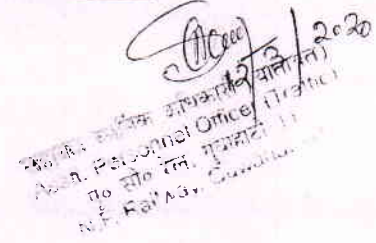 2020
कार्मिक अधिकारी (यातायात)
Personnel Officer (Traffic)
पू० सी० रेल, गुवाहाटी
N.F. Railway, Guwahati